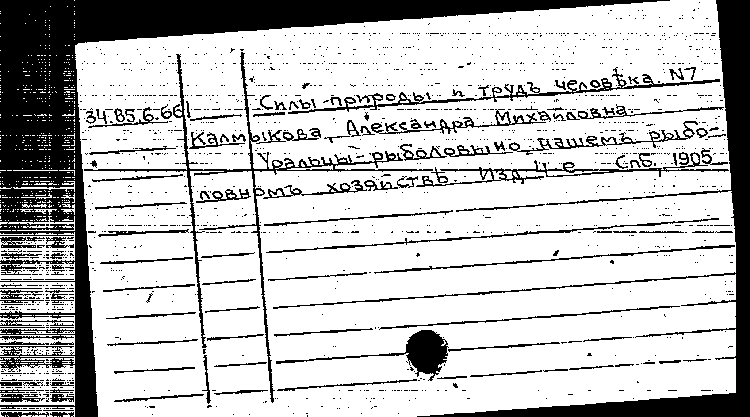 Силы природы и трудъ человѣка. N7
34.85.6.661
Калмыкова, Александра Михайловна.
Уральцы-рыболовы и о нашемъ рыбо-
ловномъ хозяйствѣ. Изд. 4-е Спб., 1905